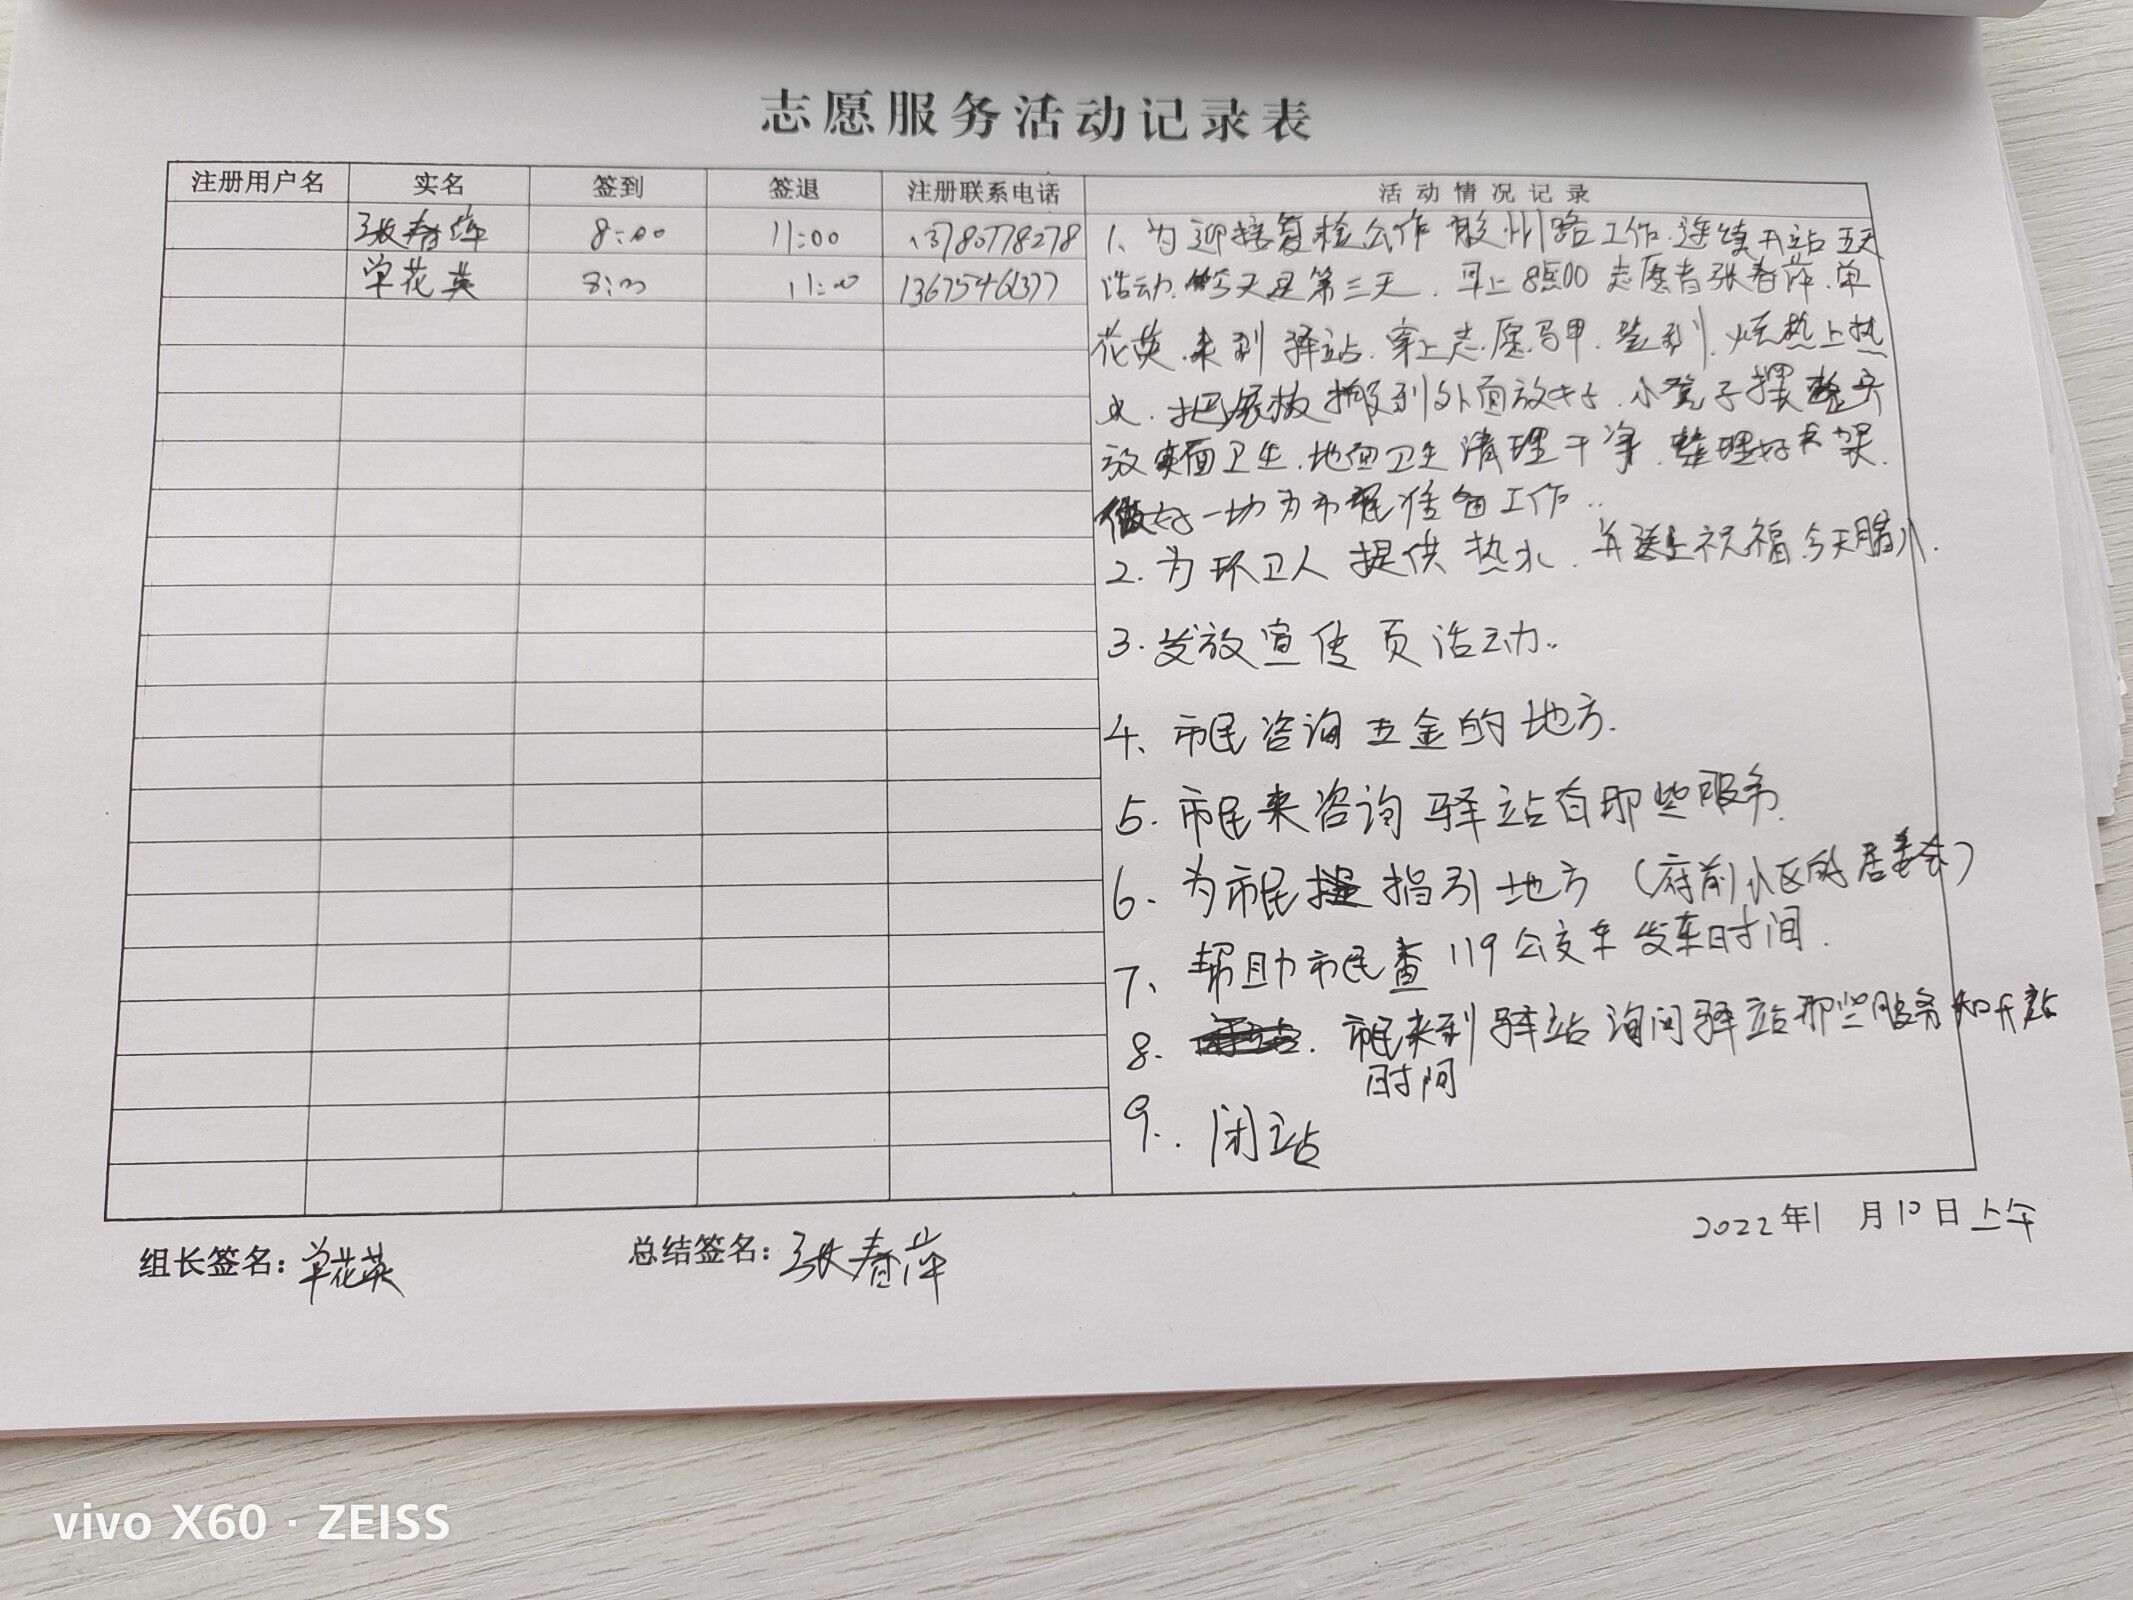 志愿服务活动记录表
注册用户名 实名 签到 签退 注册联系电话 活动情况记录
张春萍 8:00 11:00 13780778278
单花英 8:00 11:00 13675461377
1、为迎接复检公作 胶州路工作.连续开站五天
活动.今天是第三天.早上8点00志愿者张春萍.单
花英.来到驿站.穿上志愿马甲.签到.烧热上热
水.把展板搬到外面放好.小凳子摆整齐
放 面卫生.地面卫生清理干净.整理好书架.
做好一切为市民准备工作..
2.为环卫人提供热水.并送上祝福.今天腊八.
3.发放宣传页活动..
4、市民咨询五金的地方.
5.市民来咨询驿站有那些服务.
6、为市民 指引地方(府前小区的居委会)
7、帮助市民查119公交车发车时间.
8. 市民来到驿站询问驿站那些服务和开站
时间
9.. 闭站
2022年1月10日上午
组长签名：单花英 总结签名：张春萍
vivo X60 · ZEISS